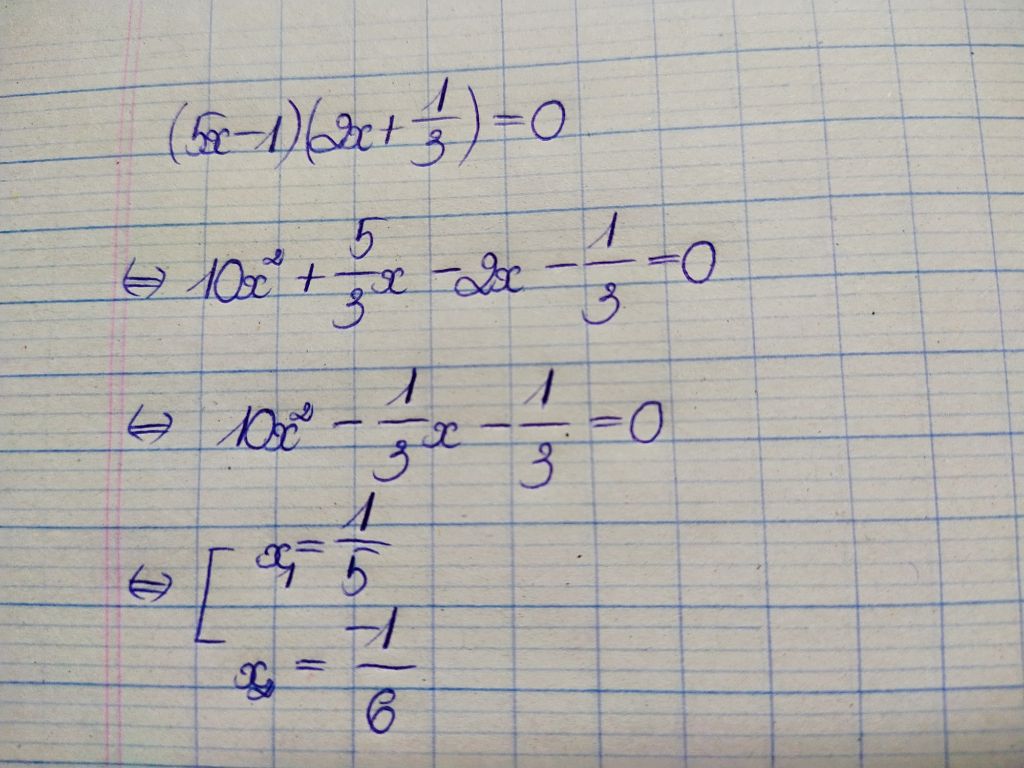 (5x-1)(2x+1/3)=0
⇔ 10x² + 5/3 x - 2x - 1/3 = 0
⇔ 10x² - 1/3 x - 1/3 = 0
⇔ [ x₁ = 1/5
x₂ = -1/6